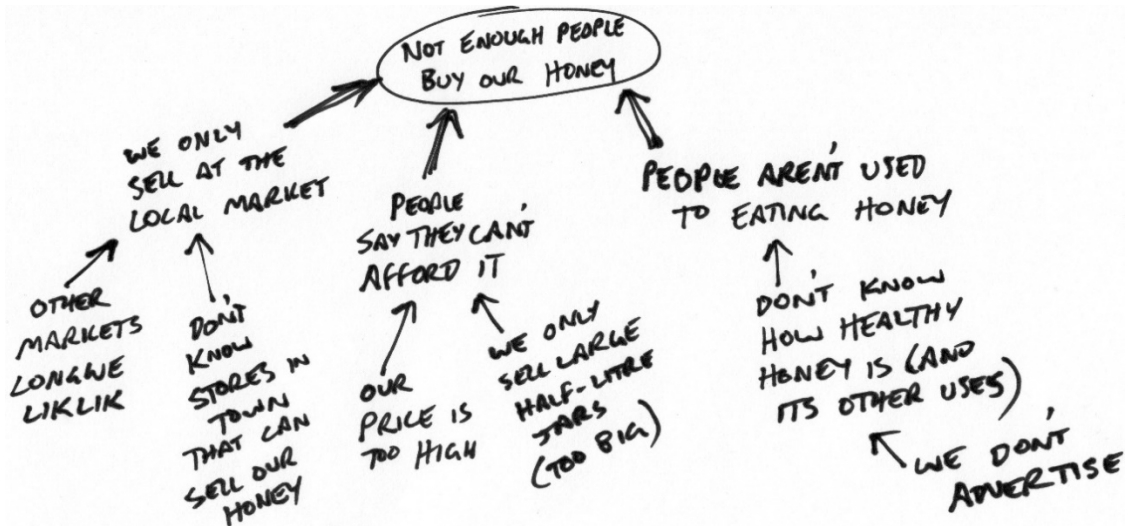 NOT ENOUGH PEOPLE
BUY OUR HONEY
WE ONLY
SELL AT THE
LOCAL MARKET
OTHER
MARKETS
LONGWE
LIKLIK
DON'T
KNOW
STORES IN
TOWN
THAT CAN
SELL OUR
HONEY
PEOPLE
SAY THEY CAN'T
AFFORD IT
OUR
PRICE IS
TOO HIGH
WE ONLY
SELL LARGE
HALF-LITRE
JARS
(TOO BIG)
PEOPLE AREN'T USED
TO EATING HONEY
DON'T KNOW
HOW HEALTHY
HONEY IS (AND
ITS OTHER USES)
WE DON'T
ADVERTISE